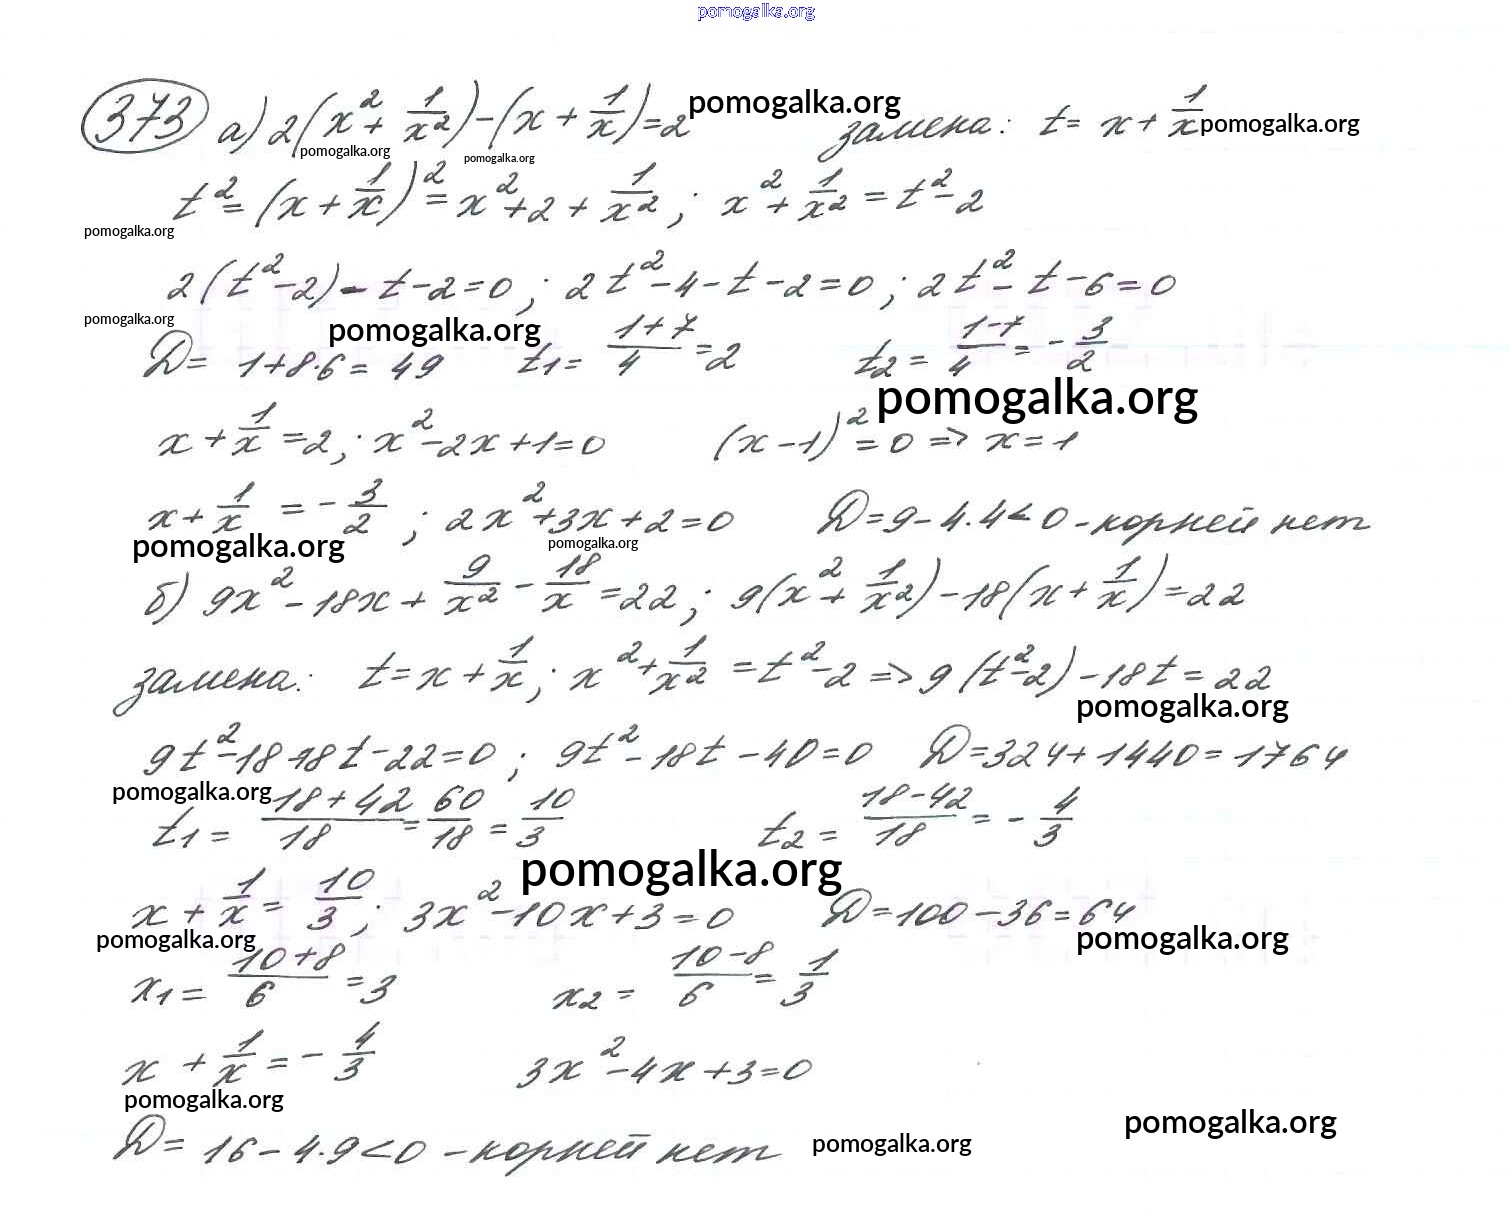 pomogalka.org
373 а) 2(x² + 1/x²) - (x + 1/x) = 2 pomogalka.org замена: t = x + 1/x pomogalka.org
pomogalka.org pomogalka.org
t² = (x + 1/x)² = x² + 2 + 1/x² ; x² + 1/x² = t² - 2
pomogalka.org
2(t² - 2) - t - 2 = 0 ; 2t² - 4 - t - 2 = 0 ; 2t² - t - 6 = 0
pomogalka.org pomogalka.org
D = 1 + 8·6 = 49 t1 = (1+7)/4 = 2 t2 = (1-7)/4 = -3/2
pomogalka.org
x + 1/x = 2 ; x² - 2x + 1 = 0 (x - 1)² = 0 => x = 1
x + 1/x = -3/2 ; 2x² + 3x + 2 = 0 D = 9 - 4·4 < 0 - корней нет
pomogalka.org pomogalka.org
б) 9x² - 18x + 9/x² - 18/x = 22 ; 9(x² + 1/x²) - 18(x + 1/x) = 22
замена: t = x + 1/x ; x² + 1/x² = t² - 2 => 9(t² - 2) - 18t = 22
pomogalka.org
9t² - 18 - 18t - 22 = 0 ; 9t² - 18t - 40 = 0 D = 324 + 1440 = 1764
pomogalka.org
t1 = (18+42)/18 = 60/18 = 10/3 t2 = (18-42)/18 = -4/3
pomogalka.org
x + 1/x = 10/3 ; 3x² - 10x + 3 = 0 D = 100 - 36 = 64
pomogalka.org pomogalka.org
x1 = (10+8)/6 = 3 x2 = (10-8)/6 = 1/3
x + 1/x = -4/3 3x² - 4x + 3 = 0
pomogalka.org pomogalka.org
D = 16 - 4·9 < 0 - корней нет pomogalka.org